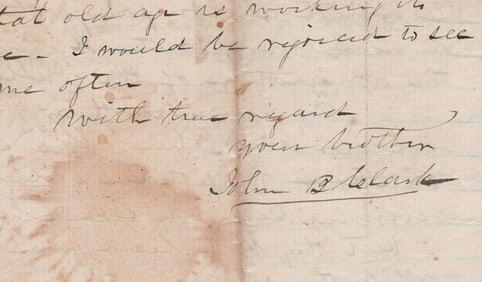 that old age is working its
I would be rejoiced to see
me often
with true regard
your brother
John B Clark